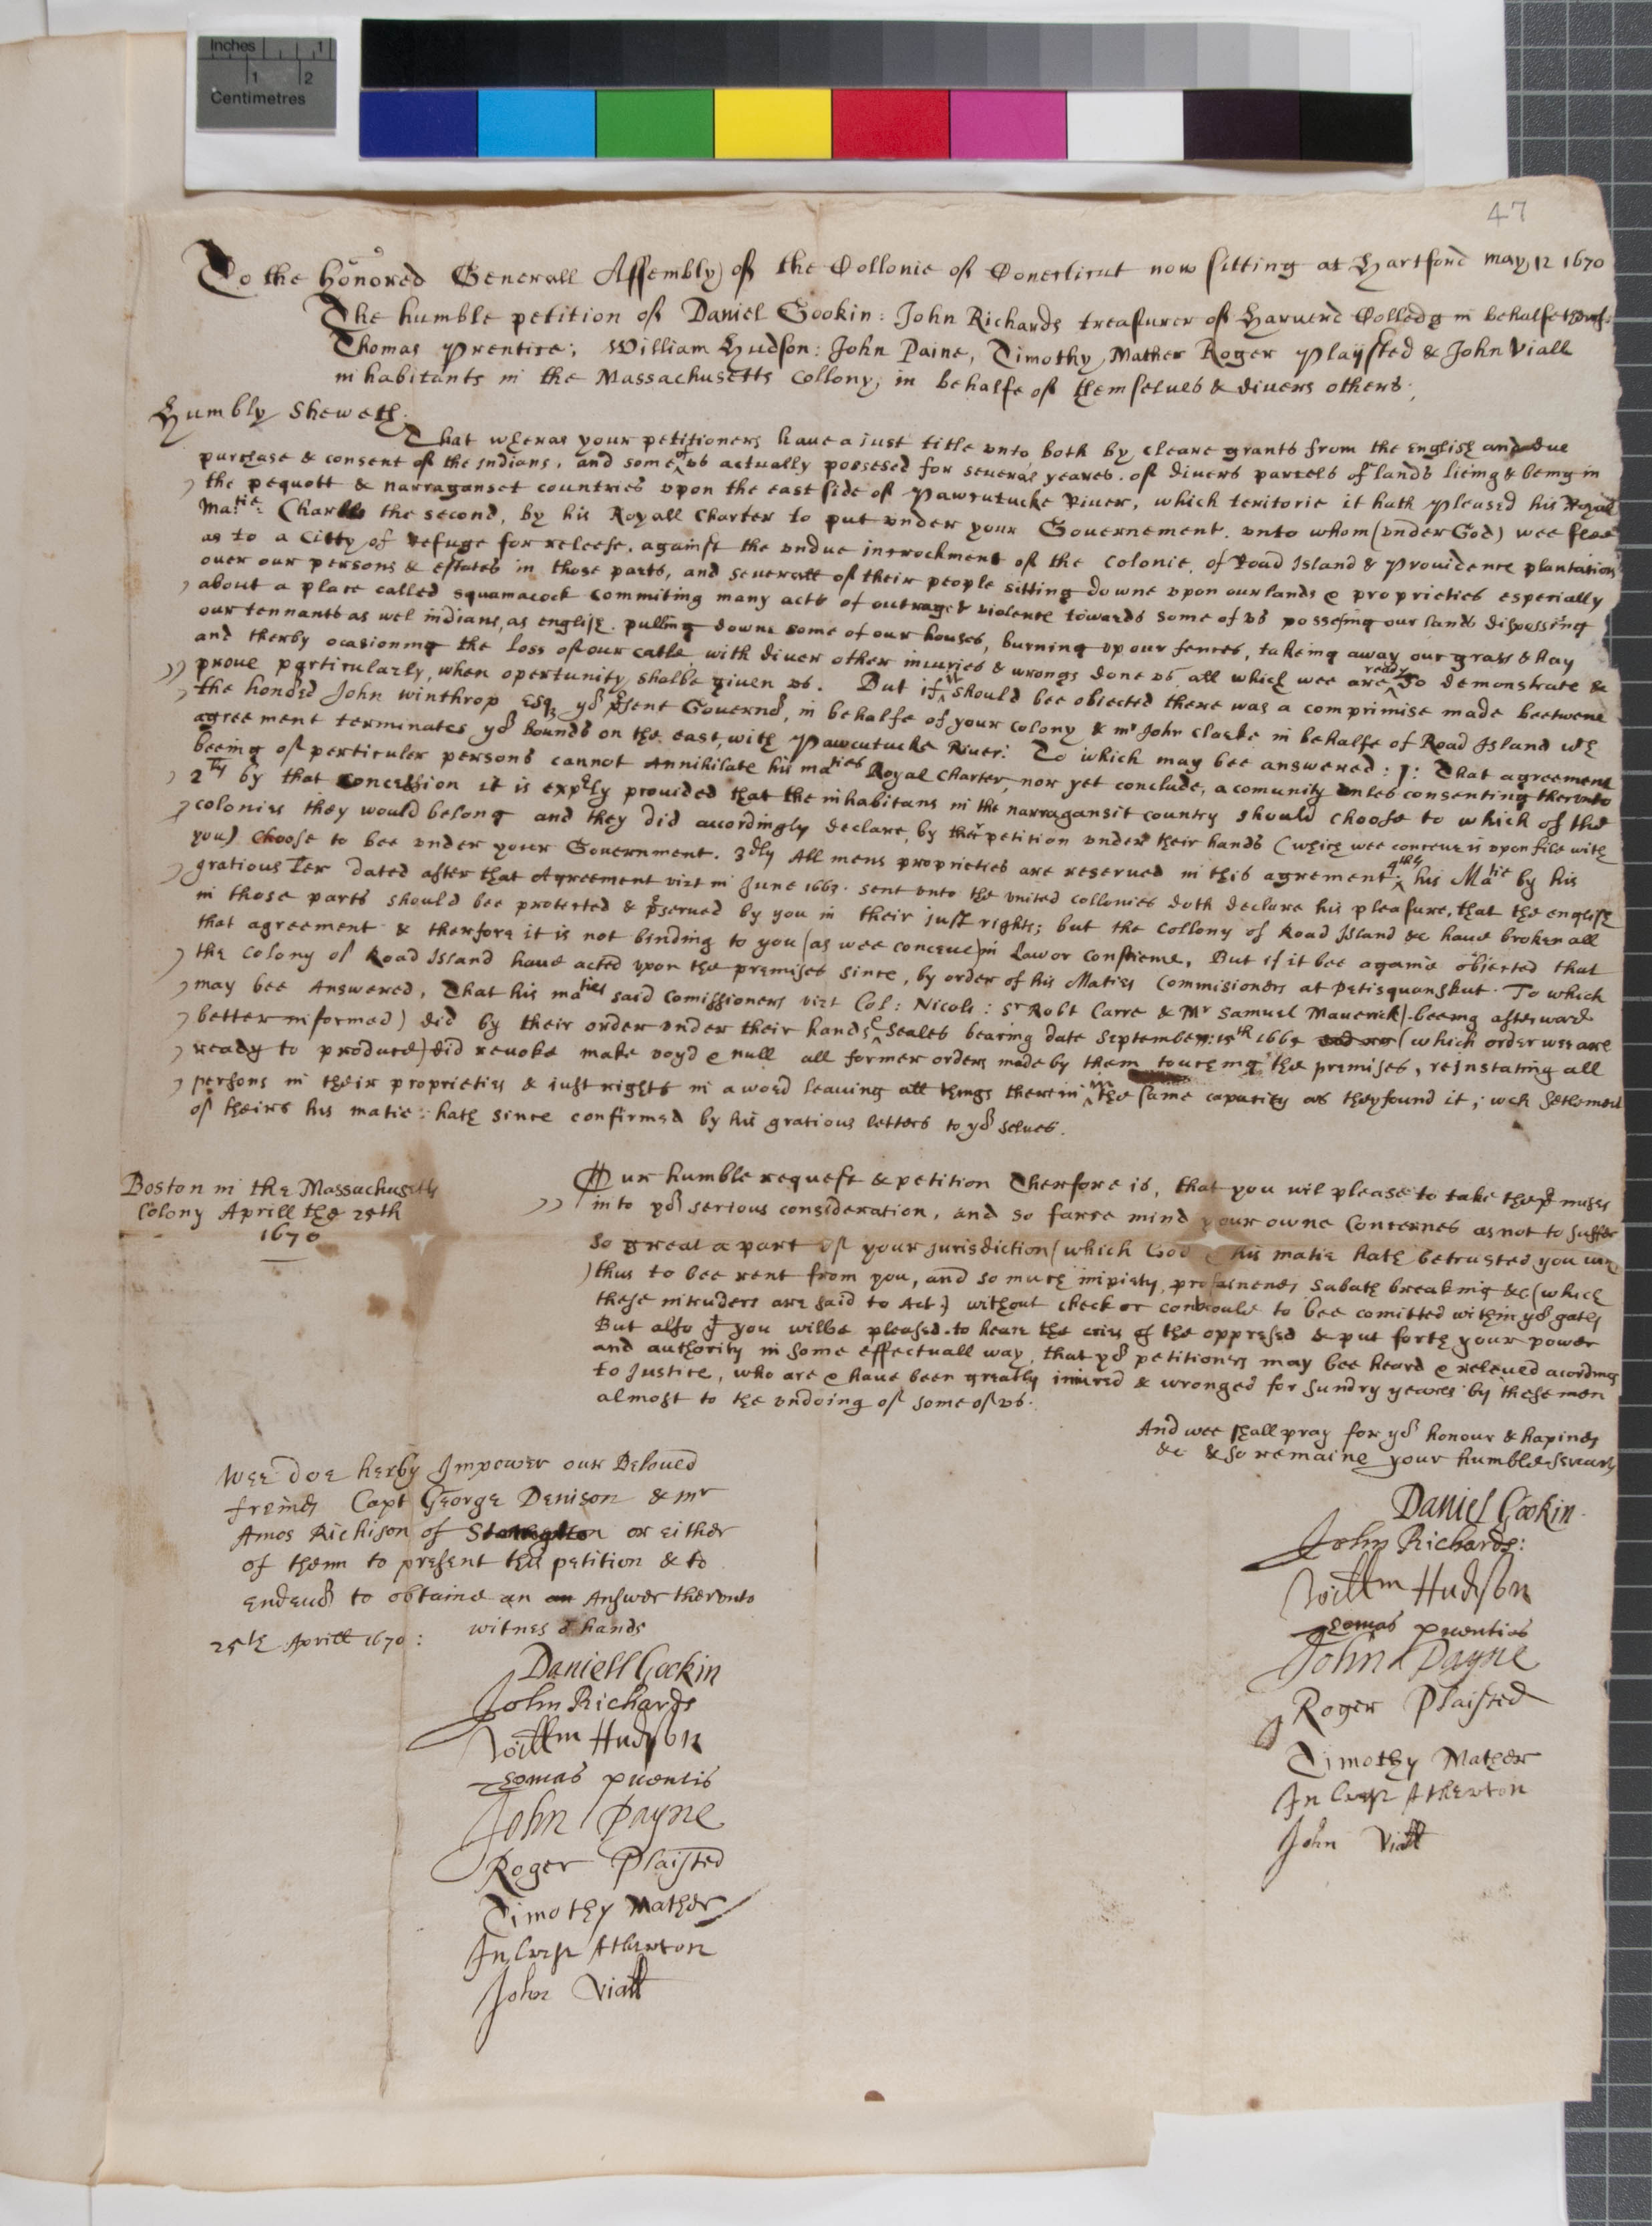 Inches 1
1 2
Centimetres
47
To the honored Generall Assembly of the Collonie of Conecticut now sitting at Hartford may 12 1670
The humble petition of Daniel Gookin: John Richards treasurer of Harverd Colledg in behalfe
Thomas Prentice; William Hudson: John Paine, Timothy Mather Roger Playsted & John Viall
inhabitants in the Massachusetts Collony, in behalfe of themselves & divers others;
Humbly Sheweth;
That wheras your petitioners have a iust title vnto both by cleare grants from the English and due
purchase & consent of the indians, and some of vs actually possesed for several yeares. of divers parcels of lands lieing & being in
the pequott & narraganset countries vpon the east side of Pawcutucke River, which teritorie it hath pleased his Royal
Ma:tie: Charles the second, by his Royall Charter to put vnder your Governement. vnto whom (vnder God) wee flee
as to a Citty of refuge for releese, against the vndue incrochment of the Colonie, of Road Island & Providence plantations
over our persons & estates in those parts, and severall of their people sitting downe vpon our lands & proprieties especially
about a place called squamacock Commiting many acts of outrage & violence towards some of vs possesing our lands dispossing
our tennants as wel indians, as english. pulling downe some of our houses, burning vp our fences, takeing away our grass & hay
and therby ocasioning the loss of our catle, with diver other iniuries & wrongs done vs, all which wee are ready to demonstrate &
prove particularly, when opertunity shalbe given vs. But if it should bee obiected there was a comprimise made beetwene
the honōed John Winthrop Esq, yor p̄sent Governor, in behalfe of your Colony & mr John Clarke in behalfe of Road Island wch
agreement terminates yor bounds on the east, with Pawcutucke River: To which may bee answered: 1: That agreement
beeing of perticuler persons cannot Annihilate his maties Royal Charter, nor yet conclude, a comunity vnles consenting thervnto
2ly by that Concession it is expr̄ly provided that the inhabitans in the narragansit country should choose to which of the
colonies they would belong and they did acordingly declare, by ther petition vnder their hands (which wee conceve is vpon file with
you) Choose to bee vnder your Government. 3dly All mens proprieties are reserved in this agrement; 4thly his Matie by his
gratious Ler dated after that Agreement vizt in June 1663. sent vnto the vnited collonies doth declare his pleasure, that the english
in those parts should bee protected & p̄served by you in their just rights; but the Collony of Road Island &c have broken all
that agreement & therfore it is not binding to you (as wee conceve) in Law or Conscience, But if it bee againe obiected that
the Colony of Road Island have acted vpon the premises since, by order of his Maties Commisioners at Petisquanskut. To which
may bee Answered, That his maties said Comissioners vizt Col: Nicols: Sr Robt Carre & Mr Samuel Maverick) beeing afterward
better informed) did by their order vnder their hands & seales bearing date September: 15th 1665 (which order wee are
ready to produce) did revoke make voyd & null all former orders made by them touching the premises, reinstating all
persons in their proprieties & iust rights in a word leaving all things therein in the same capacity as they found it; wch
of theirs his matie: hath since confirmed by his gratious letters to yor selves.
Boston in the Massachusetts
Colony Aprill the 25th
1670
Our humble request & petition Therfore is, that you wil please to take the p̄mises
into yor serious consideration, and so farre mind your owne Concernes as not to suffer
so great a part of your jurisdiction (which God & his matie hath betrusted you with)
thus to bee rent from you, and so much impiety, profainenes Sabath breaking &c (which
these intruders are said to Act) without check or controule to bee comitted within yor gates
But also yt you wilbe pleased to heare the cries of the oppresed & put forth your power
and authority in some effectuall way, that yor petitioners may bee heard & releved acording
to Justice, who are & have been greatly iniured & wronged for sundry yeares by these men
almost to the vndoing of some of vs.
And wee shall pray for yor honour & hapines
&c & so remaine your humble servants
Wee doe herby Impower our Beloved
freinds Capt George Denison & mr
Amos Richison of Stonington or either
of them to present this petition & to
endeavor to obtaine an an Answer thervnto
25th Aprill 1670: witnes or hands
Daniell Gookin
John Richards
Willm Hudson
Tomas prentis
John Payne
Roger Plaisted
Timothy Mather
Increse Atherton
John Viall
Daniel Gookin
John Richards:
Willm Hudson
Tomas prentis
John Payne
Roger Plaisted
Timothy Mather
Increse Atherton
John Viall